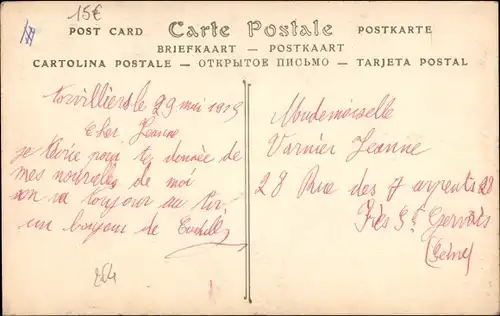 15€
POST CARD Carte Postale POSTKARTE
BRIEFKAART — POSTKAART
CARTOLINA POSTALE — ОТКРЫТОЕ ПИСЬМО — TARJETA POSTAL
Torvilliers le 29 mai 1919
Cher Jeanne
je técrie pour te donnée de
mes nouvelles de moi
son va toujour
un bonjour de
254
Mademoiselle
Varnier Jeanne
28 Rue des 7 arpents 28
Près St Gervais
(Seine)